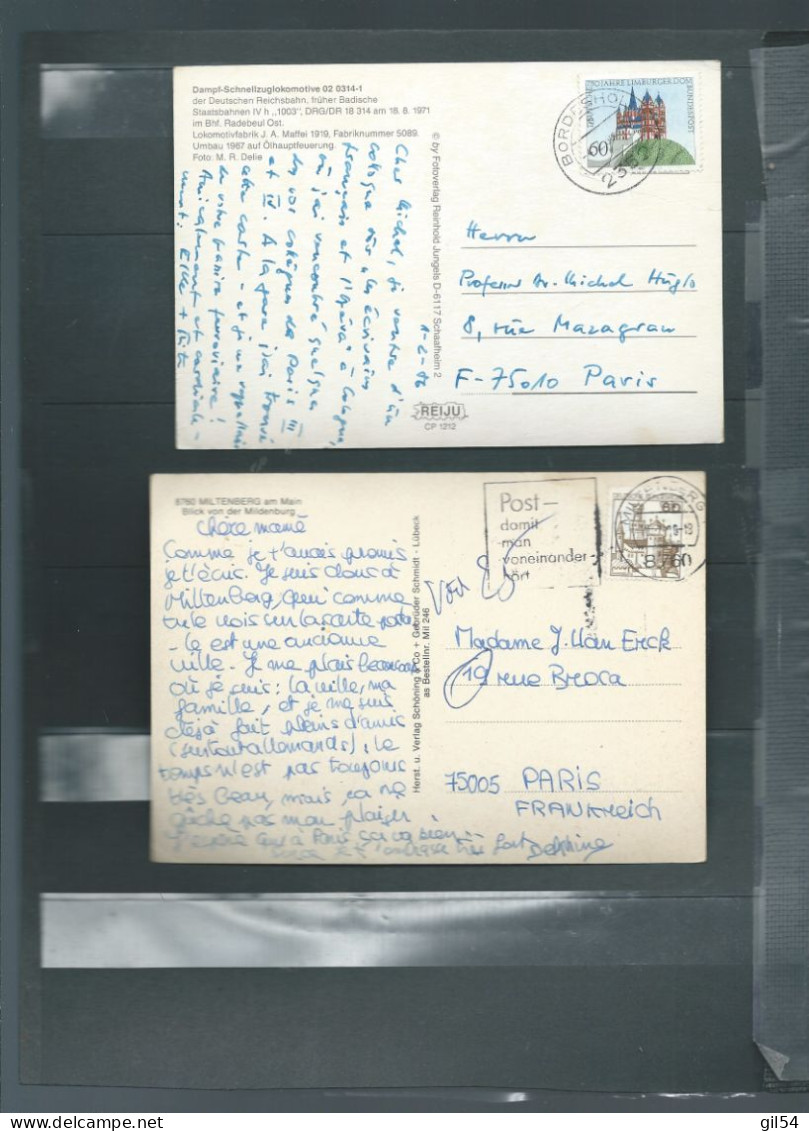 Dampf-Schnellzuglokomotive 02 0314-1
der Deutschen Reichsbahn, früher Badische
Staatsbahnen IV h „1003", DRG/DR 18 314 am 18. 6. 1971
im Bhf. Radebeul Ost.
Lokomotivfabrik J. A. Maffei 1919, Fabriknummer 5089.
Umbau 1967 auf Ölhauptfeuerung.
Foto: M. R. Delie
© by Fotoverlag Reinhold Jungels D-6117 Schaafheim 2
REIJU
CP 1212
JAHRE LIMBURGER DOM
BUNDESPOST
60
BORDESHOL
Cher Michel, je rentre d'un
colloque sur „
français et l'Opéra" à Cologne,
où j'ai rencontré quelques
de vos collègues de Paris III
et IV. A la gare j'ai trouvé
cette carte - et je me
de votre
Amicalement et cordiale-
ment
Herrn
Professor Dr. Michel Huglo
8, rue Mazagran
F-75010 Paris
8760 MILTENBERG am Main
Blick von der Mildenburg
Herst. u. Verlag Schöning & Co + Gebrüder Schmidt - Lübeck
as Bestellnr. Mil 246
Post-
damit
man
voneinander
hört
MILTENBERG
60
8760
chère mamé
Comme je t'avais promis
je t'écris. Je suis donc à
Miltenberg, qui comme
tu le vois sur la carte posta
-le est une ancienne
ville. Je me plais beaucoup
où je suis: la ville, ma
famille, et je me suis
déjà fait pleins d'amis
(surtout allemands); le
temps n'est pas toujours
très beau, mais, ça ne
gâche pas mon plaisir.
J'espère qu'à Paris ça va bien
je t'embrasse très fort Delphine
Madame J. Van Erck
19 rue Broca
75005 PARIS
FRANKREICH
gil54